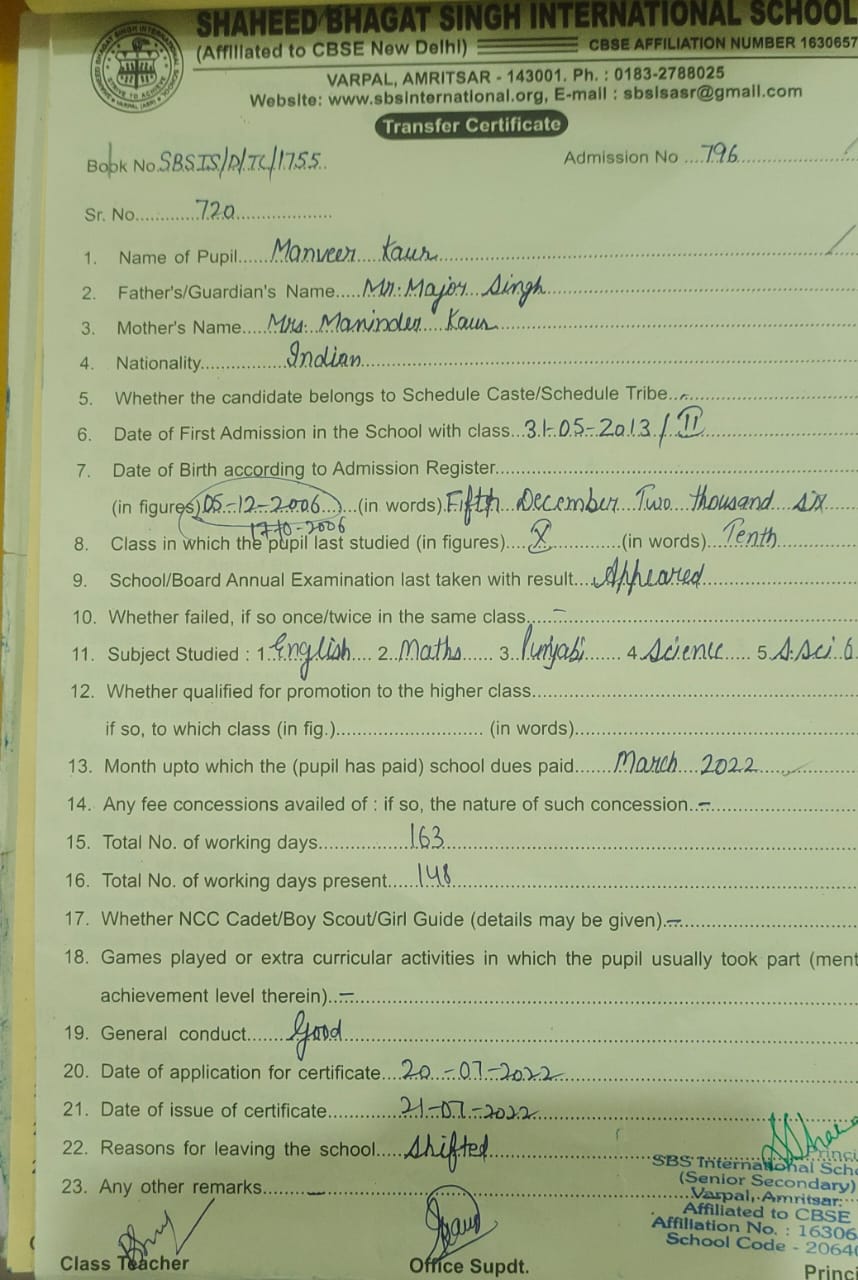 SHAHEED BHAGAT SINGH INTERNATIONAL SCHOOL
(Affiliated to CBSE New Delhi) CBSE AFFILIATION NUMBER 1630657
VARPAL, AMRITSAR - 143001. Ph. : 0183-2788025
Website: www.sbsinternational.org, E-mail : sbsisasr@gmail.com
Transfer Certificate
Book No. SBSIS/D/TC/1755 Admission No 796
Sr. No. 720
1. Name of Pupil Manveer Kaur
2. Father's/Guardian's Name Mr. Major Singh
3. Mother's Name Mrs. Maninder Kaur
4. Nationality Indian
5. Whether the candidate belongs to Schedule Caste/Schedule Tribe -
6. Date of First Admission in the School with class 31-05-2013 / II
7. Date of Birth according to Admission Register
(in figures) 05-12-2006 (in words) Fifth December Two thousand six
17-10-2006
8. Class in which the pupil last studied (in figures) X (in words) Tenth
9. School/Board Annual Examination last taken with result Appeared
10. Whether failed, if so once/twice in the same class -
11. Subject Studied : 1. English 2. Maths 3. Punjabi 4. Science 5. S.Sci 6
12. Whether qualified for promotion to the higher class
if so, to which class (in fig.) (in words)
13. Month upto which the (pupil has paid) school dues paid March 2022
14. Any fee concessions availed of : if so, the nature of such concession -
15. Total No. of working days 163
16. Total No. of working days present 148
17. Whether NCC Cadet/Boy Scout/Girl Guide (details may be given) -
18. Games played or extra curricular activities in which the pupil usually took part (ment
achievement level therein) -
19. General conduct Good
20. Date of application for certificate 20-07-2022
21. Date of issue of certificate 21-07-2022
22. Reasons for leaving the school Shifted
Princi
SBS International Scho
(Senior Secondary)
23. Any other remarks -
Varpal, Amritsar.
Affiliated to CBSE
Affiliation No. : 16306
School Code - 2064
Class Teacher Office Supdt. Princi